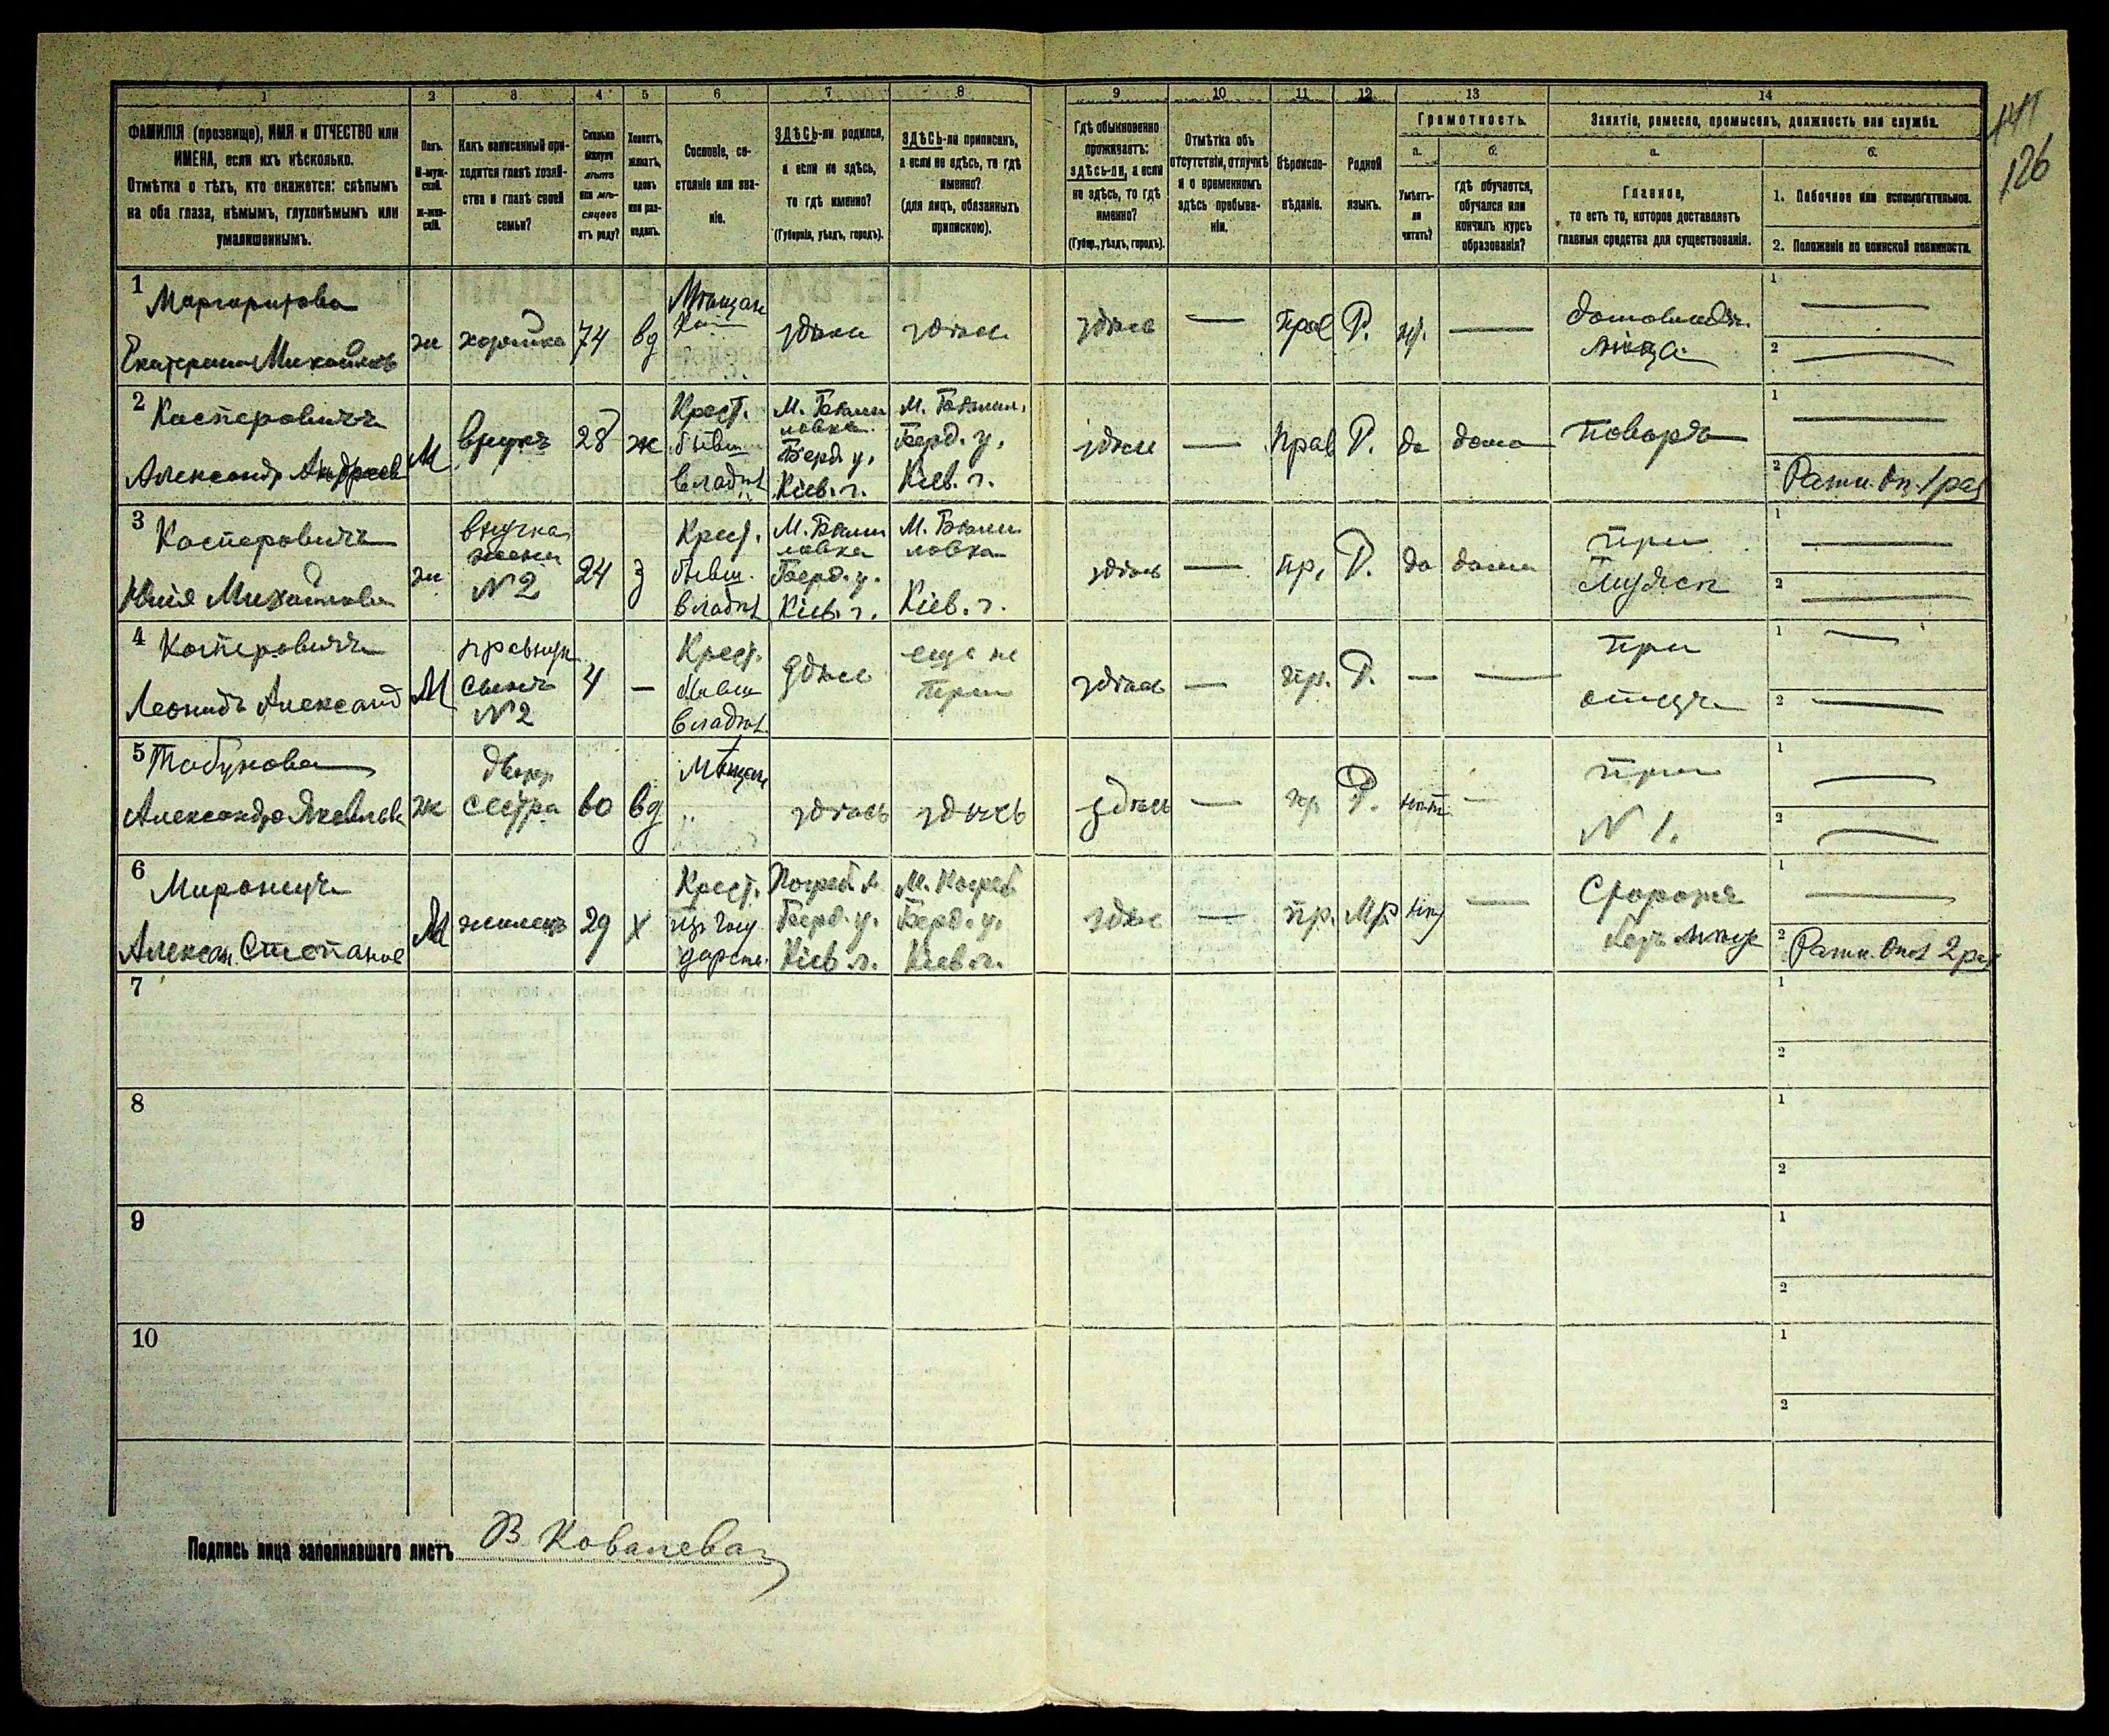 1 2 3 4 5 6 7 8 9 10 11 12 13 14
141
126
ФАМИЛІЯ (прозвище), ИМЯ и ОТЧЕСТВО или ИМЕНА, если ихъ нѣсколько.
Отмѣтка о тѣхъ, кто окажется: слѣпымъ на оба глаза, нѣмымъ, глухонѣмымъ или умалишеннымъ.
Полъ.
М-мужской.
Ж-женскій.
Какъ записанный приходится главѣ хозяйства и главѣ своей семьи?
Сколько минуло лѣтъ или мѣсяцевъ отъ роду?
Холостъ, женатъ, вдовъ или разведенъ.
Сословіе, состояніе или званіе.
ЗДѢСЬ-ли родился, а если не здѣсь, то гдѣ именно?
(Губернія, уѣздъ, городъ).
ЗДѢСЬ-ли приписанъ, а если не здѣсь, то гдѣ именно?
(для лицъ, обязанныхъ припискою).
Гдѣ обыкновенно проживаетъ: здѣсь-ли, а если не здѣсь, то гдѣ именно?
(Губер., уѣздъ, городъ).
Отмѣтка объ отсутствіи, отлучкѣ и о временномъ здѣсь пребываніи.
Вѣроисповѣданіе.
Родной языкъ.
Грамотность.
а.
Умѣетъ-ли читать?
б.
гдѣ обучается, обучался или кончилъ курсъ образованія?
Занятіе, ремесло, промыселъ, должность или служба.
а.
Главное,
то есть то, которое доставляетъ главныя средства для существованія.
б.
1. Побочное или вспомогательное.
2. Положеніе по воинской повинности.
1 Маргаритова
Екатерина Михайлов
ж хозяйка 74 вд Мѣщан здѣсь здѣсь здѣсь — Прав Р. — домовладѣлица
1 —
2 —
2 Касперовичъ
Александр Андреев
М внукъ 28 ж Крест. бывш владѣл
М. Бѣлиловка Берд у. Кіев. г.
М. Бѣлил. Берд. у. Кіев. г.
здѣсь — Прав Р. да дома поваръ
1 —
2 Ратн. оп. 1 раз
3 Касперовичъ
Юлія Михайлова
ж внучка жена №2 24 з Крест. бывш. владѣл
М. Бѣлиловка Берд. у. Кіев. г.
М. Бѣлиловка Кіев. г.
здѣсь — пр. Р. да дома при мужѣ
1 —
2 —
4 Касперовичъ
Леонидъ Александ
М правнук сынъ №2 4 — Крест. бывш владѣл.
здѣсь еще не прип здѣсь — пр. Р. — — при отцѣ
1 —
2 —
5 Табунова
Александра Яковлев
ж двоюр сестра 60 вд Мѣщан здѣсь здѣсь здѣсь — пр Р. нѣт — при № 1.
1 —
2 —
6
Алексан. Степанов
М жилецъ 29 х Крест. изъ госу дарств.
Погреб. Берд. у. Кіев. г.
М. Погреб Берд. у. Кіев г.
здѣс — пр. Мр нѣт — Сторожъ безъ мѣста
1 —
2 Ратн. Опол 2 раз
7
1
2
8
1
2
9
1
2
10
1
2
Подпись лица заполнявшаго листъ В Ковалева